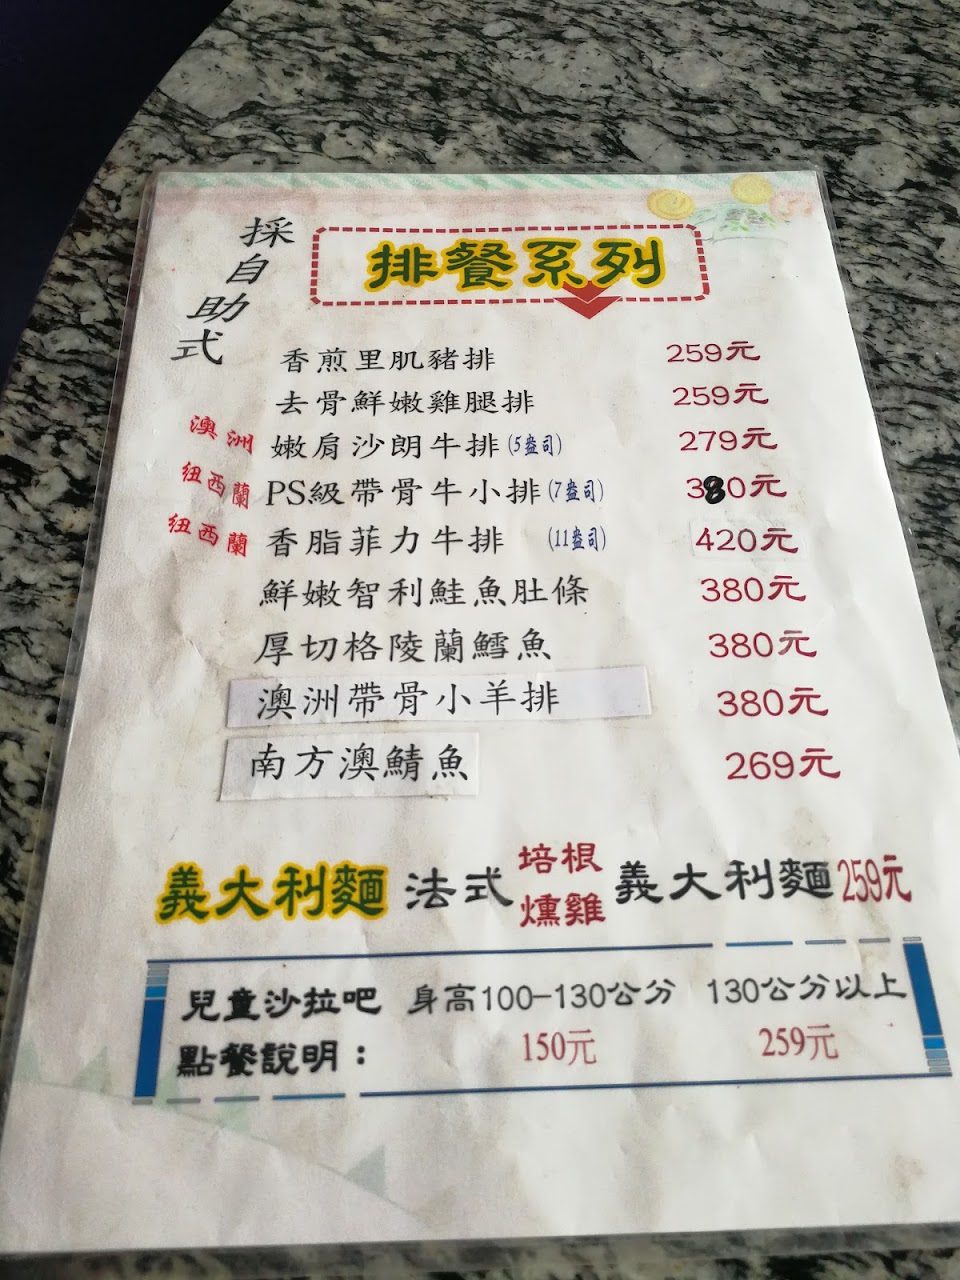 採自助式
排餐系列
香煎里肌豬排 259元
去骨鮮嫩雞腿排 259元
澳洲 嫩肩沙朗牛排(5盎司) 279元
紐西蘭 PS級帶骨牛小排(7盎司) 380元
紐西蘭 香脂菲力牛排 (11盎司) 420元
鮮嫩智利鮭魚肚條 380元
厚切格陵蘭鱈魚 380元
澳洲帶骨小羊排 380元
南方澳鯖魚 269元
義大利麵 法式 培根 義大利麵 259元
燻雞
兒童沙拉吧 身高100-130公分 130公分以上
點餐說明： 150元 259元